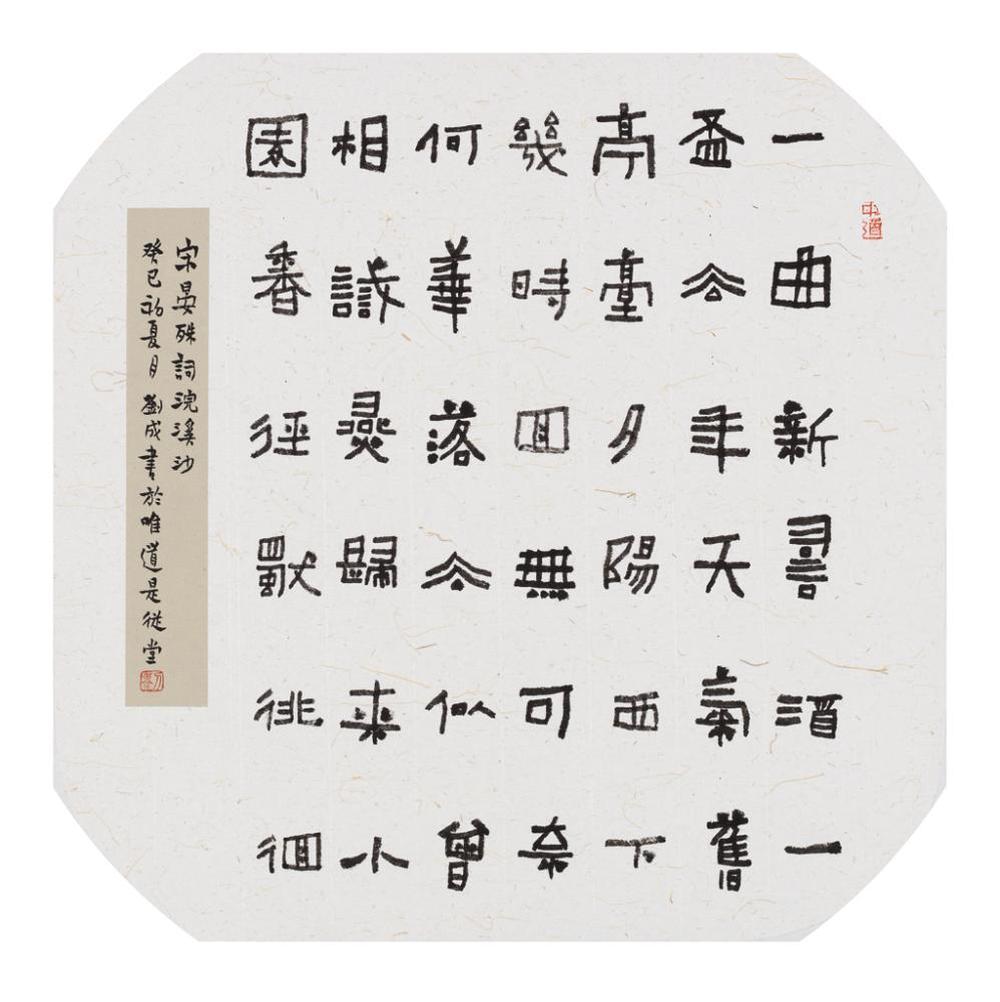 一曲新詞酒一
盃去年天氣舊
亭臺夕陽西下
幾時回無可奈
何華落去似曾
相識燕歸來小
園香徑獨徘徊
宋晏殊詞浣溪沙
癸巳初夏月劉成書於唯道是從堂